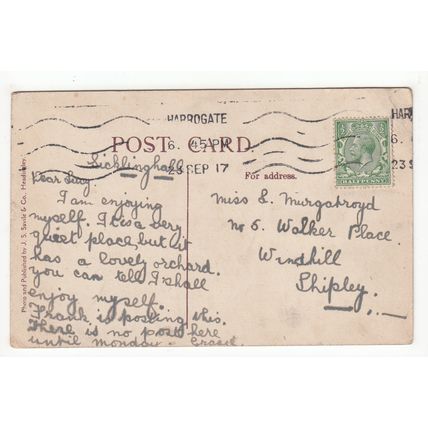 HARROGATE
6. 45 PM
23 SEP 17
HAR
6.
23 S
POST CARD.
For address.
HALFPENNY
Photo and Published by J. S. & Co., Headingley.
Sicklinghall
Dear Lucy
I am enjoying
myself. It is a very
quiet place, but it
has a lovely orchard.
you can tell I shall
enjoy myself.
Frank is posting this.
There is no post here
until Monday.
Miss L. Murgatroyd
no 5. Walker Place.
Windhill
Shipley.